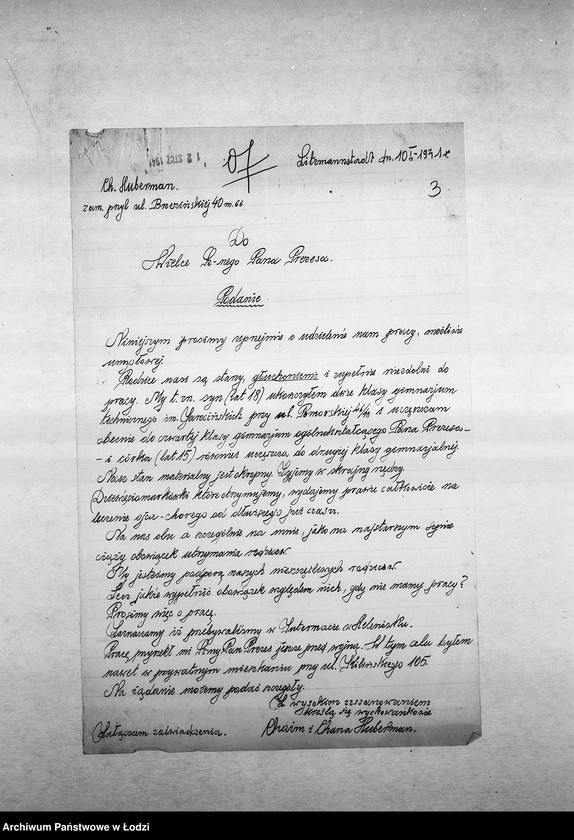 12 STYCZ 1941
07
Litzmannstadt dn. 10/I-1941 r
3
Ch. Huberman.
zam. przy ul. Brzezińskiej 40 m. 66
Do
Wielce Sz-nego Pana Prezesa.
Podanie.
Niniejszym prosimy uprzejmie o udzielenie nam pracy, możliwie
umysłowej.
Rodzice nasi są starzy, głuchoniemi i zupełnie niezdolni do
pracy. My t. zn. syn (lat 18) ukończyłem dwie klasy gimnazjum
technicznego im. Jarocińskich przy ul. Pomorskiej 46/48 i uczęszczam
obecnie do czwartej klasy gimnazjum ogólnokształcącego Pana Prezesa-
- i córka (lat 15) również uczęszcza do drugiej klasy gimnazjalnej.
Nasz stan materialny jest okropny. Żyjemy w skrajnej nędzy.
Dziewięciomarkówki które otrzymujemy, wydajemy prawie całkowicie na
leczenie ojca - chorego od dłuższego już czasu.
Na nas obu a szczególnie na mnie, jako na najstarszym synie
ciąży obowiązek utrzymania rodziców.
My jesteśmy podporą naszych nieszczęśliwych rodziców.
Lecz jakże wypełnić obowiązek względem nich, gdy nie mamy pracy?
Prosimy więc o pracę.
Zaznaczamy iż przebywaliśmy w Internacie w Helenówku.
Pracę przyrzekł mi Szny Pan Prezes jeszcze przed wojną. W tym celu byłem
nawet w prywatnym mieszkaniu przy ul. Kilińskiego 105.
Na żądanie możemy podać szczegóły.
Z wysokim szszanowaniem
kreślą się wychowankowie
Załączam zaświadczenia.
Chaim i Chana Huberman.
Archiwum Państwowe w Łodzi